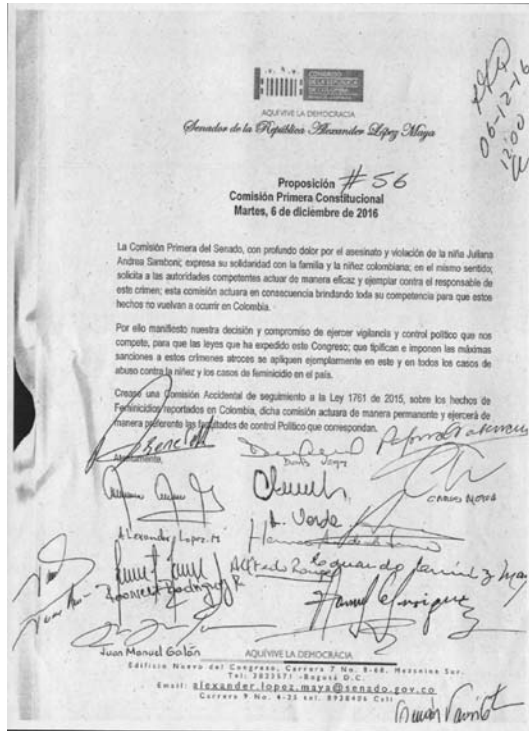 CONGRESO
DE LA REPÚBLICA
DE COLOMBIA
AQUÍ VIVE LA DEMOCRACIA
Senador de la República Alexander López Maya
06-12-16
12:00
Proposición # 56
Comisión Primera Constitucional
Martes, 6 de diciembre de 2016
La Comisión Primera del Senado, con profundo dolor por el asesinato y violación de la niña Juliana
Andrea Samboni; expresa su solidaridad con la familia y la niñez colombiana; en el mismo sentido;
solicita a las autoridades competentes actuar de manera eficaz y ejemplar contra el responsable de
este crimen; esta comisión actuara en consecuencia brindando toda su competencia para que estos
hechos no vuelvan a ocurrir en Colombia.
Por ello manifiesto nuestra decisión y compromiso de ejercer vigilancia y control político que nos
compete, para que las leyes que ha expedido este Congreso; que tipifican e imponen las máximas
sanciones a estos crímenes atroces se apliquen ejemplarmente en este y en todos los casos de
abuso contra la niñez y los casos de feminicidio en el país.
Crease una Comisión Accidental de seguimiento a la Ley 1761 de 2015, sobre los hechos de
Feminicidios reportados en Colombia, dicha comisión actuara de manera permanente y ejercerá de
manera preferente las facultades de control Político que correspondan.
Atentamente,
Doris Vega
Carlos Motoa
Alexander Lopez. M
Roosvelt Rodriguez R
Alfredo Rangel
Juan Manuel Galán
AQUÍ VIVE LA DEMOCRACIA
Edificio Nuevo del Congreso, Carrera 7 No. 8-68, Mezanine Sur.
Tel: 3823571 -Bogotá D.C.
Email: alexander.lopez.maya@senado.gov.co
Carrera 9 No. 4-25 tel. 8938406 Cali